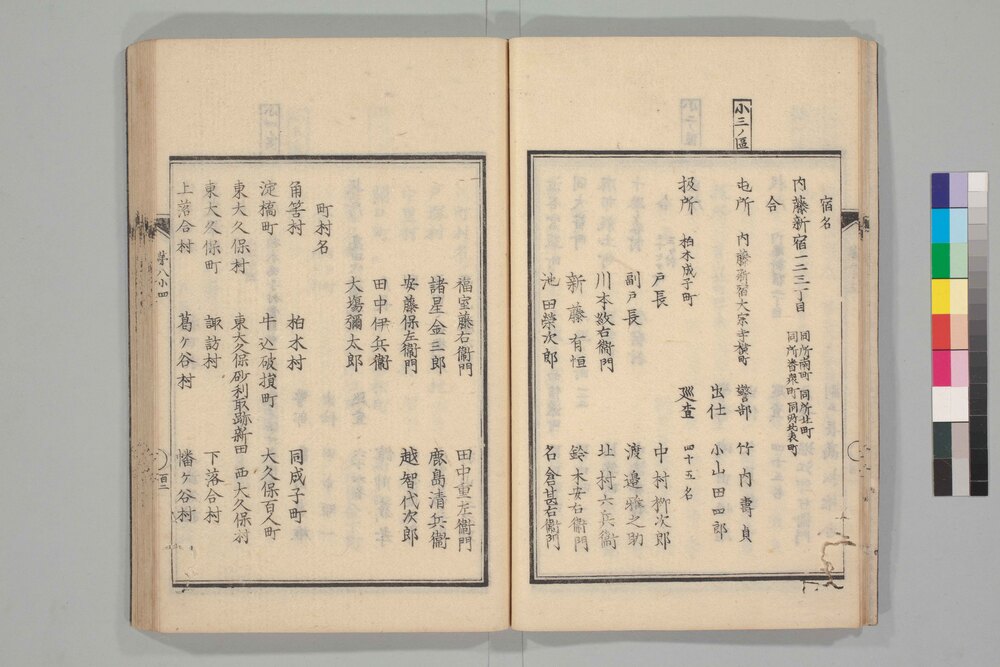 小三ノ區
宿名
内藤新宿一二三丁目 同所南町 同所北町
同所番衆町 同所北裏町
合
屯所 内藤新宿大宗寺横町 警部 竹内壽貞
出仕 小山田四郎
扱所 柏木成子町 巡査 四十五名
戸長 中村柳次郎
副戸長 渡邉雅之助
川本数右衞門 北村六兵衞
新藤有恒 鈴木安右衞門
池田榮次郎 名倉甚右衞門
福室藤右衞門 田中重左衞門
諸星金三郎 鹿島清兵衞
安藤保左衞門 越智代次郎
田中伊兵衞
大塲彌太郎
町村名
角筈村 柏木村 同成子町
淀橋町 牛込破損町 大久保百人町
東大久保村 東大久保砂利取跡新田 西大久保村
東大久保町 諏訪村 下落合村
上落合村 葛ヶ谷村 幡ヶ谷村
第八小四
百二